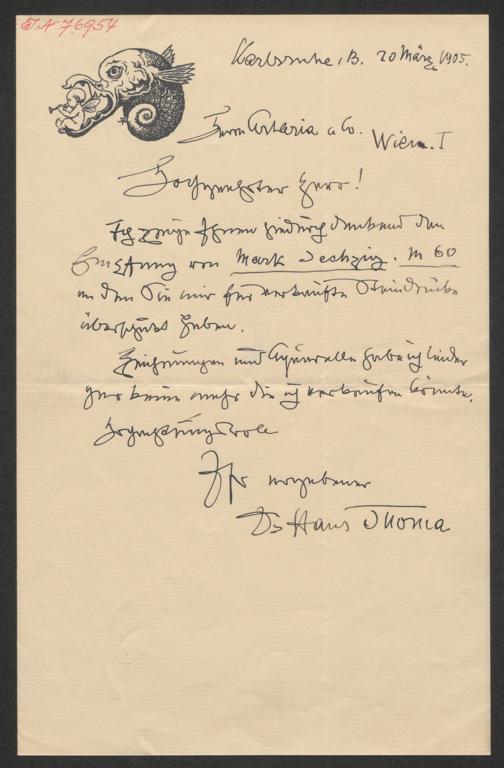 I.N. 76954
Karlsruhe i.B. 20 März 1905.
Herrn Artaria & Co. Wien. I
Hochgeehrter Herr!
Ich zeige Ihnen hiedurch dankend den
Empfang von Mark Sechzig. M 60
an den Sie mir für verkaufte Steindrucke
überschickt haben.
Zeichnungen und Aquarelle habe ich leider
gar keine mehr die ich verkaufen könnte.
Hochachtungsvoll
Ihr ergebener
Dr Hans Thoma